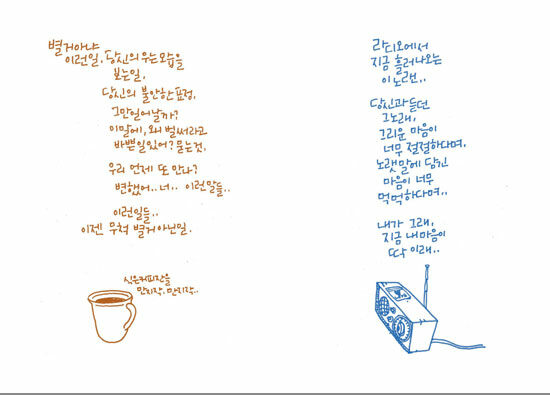 별거아냐
이런일. 당신의 우는모습을
보는일.
당신의 불안한 표정.
그만일어날까?
이말에, 왜 벌써라고
바쁜일있어? 묻는것.
우리 언제 또 만나?
변했어.. 너.. 이런말들..
이런일들..
이젠 무척 별거아닌일.
식은커피잔을
만지작. 만지작..
라디오에서
지금 흘러나오는
이노랜..
당신과듣던
그노래,
그리운 마음이
너무 절절하다며,
노랫말에 담긴
마음이 너무
먹먹하다며..
내가 그래,
지금 내마음이
딱 이래..